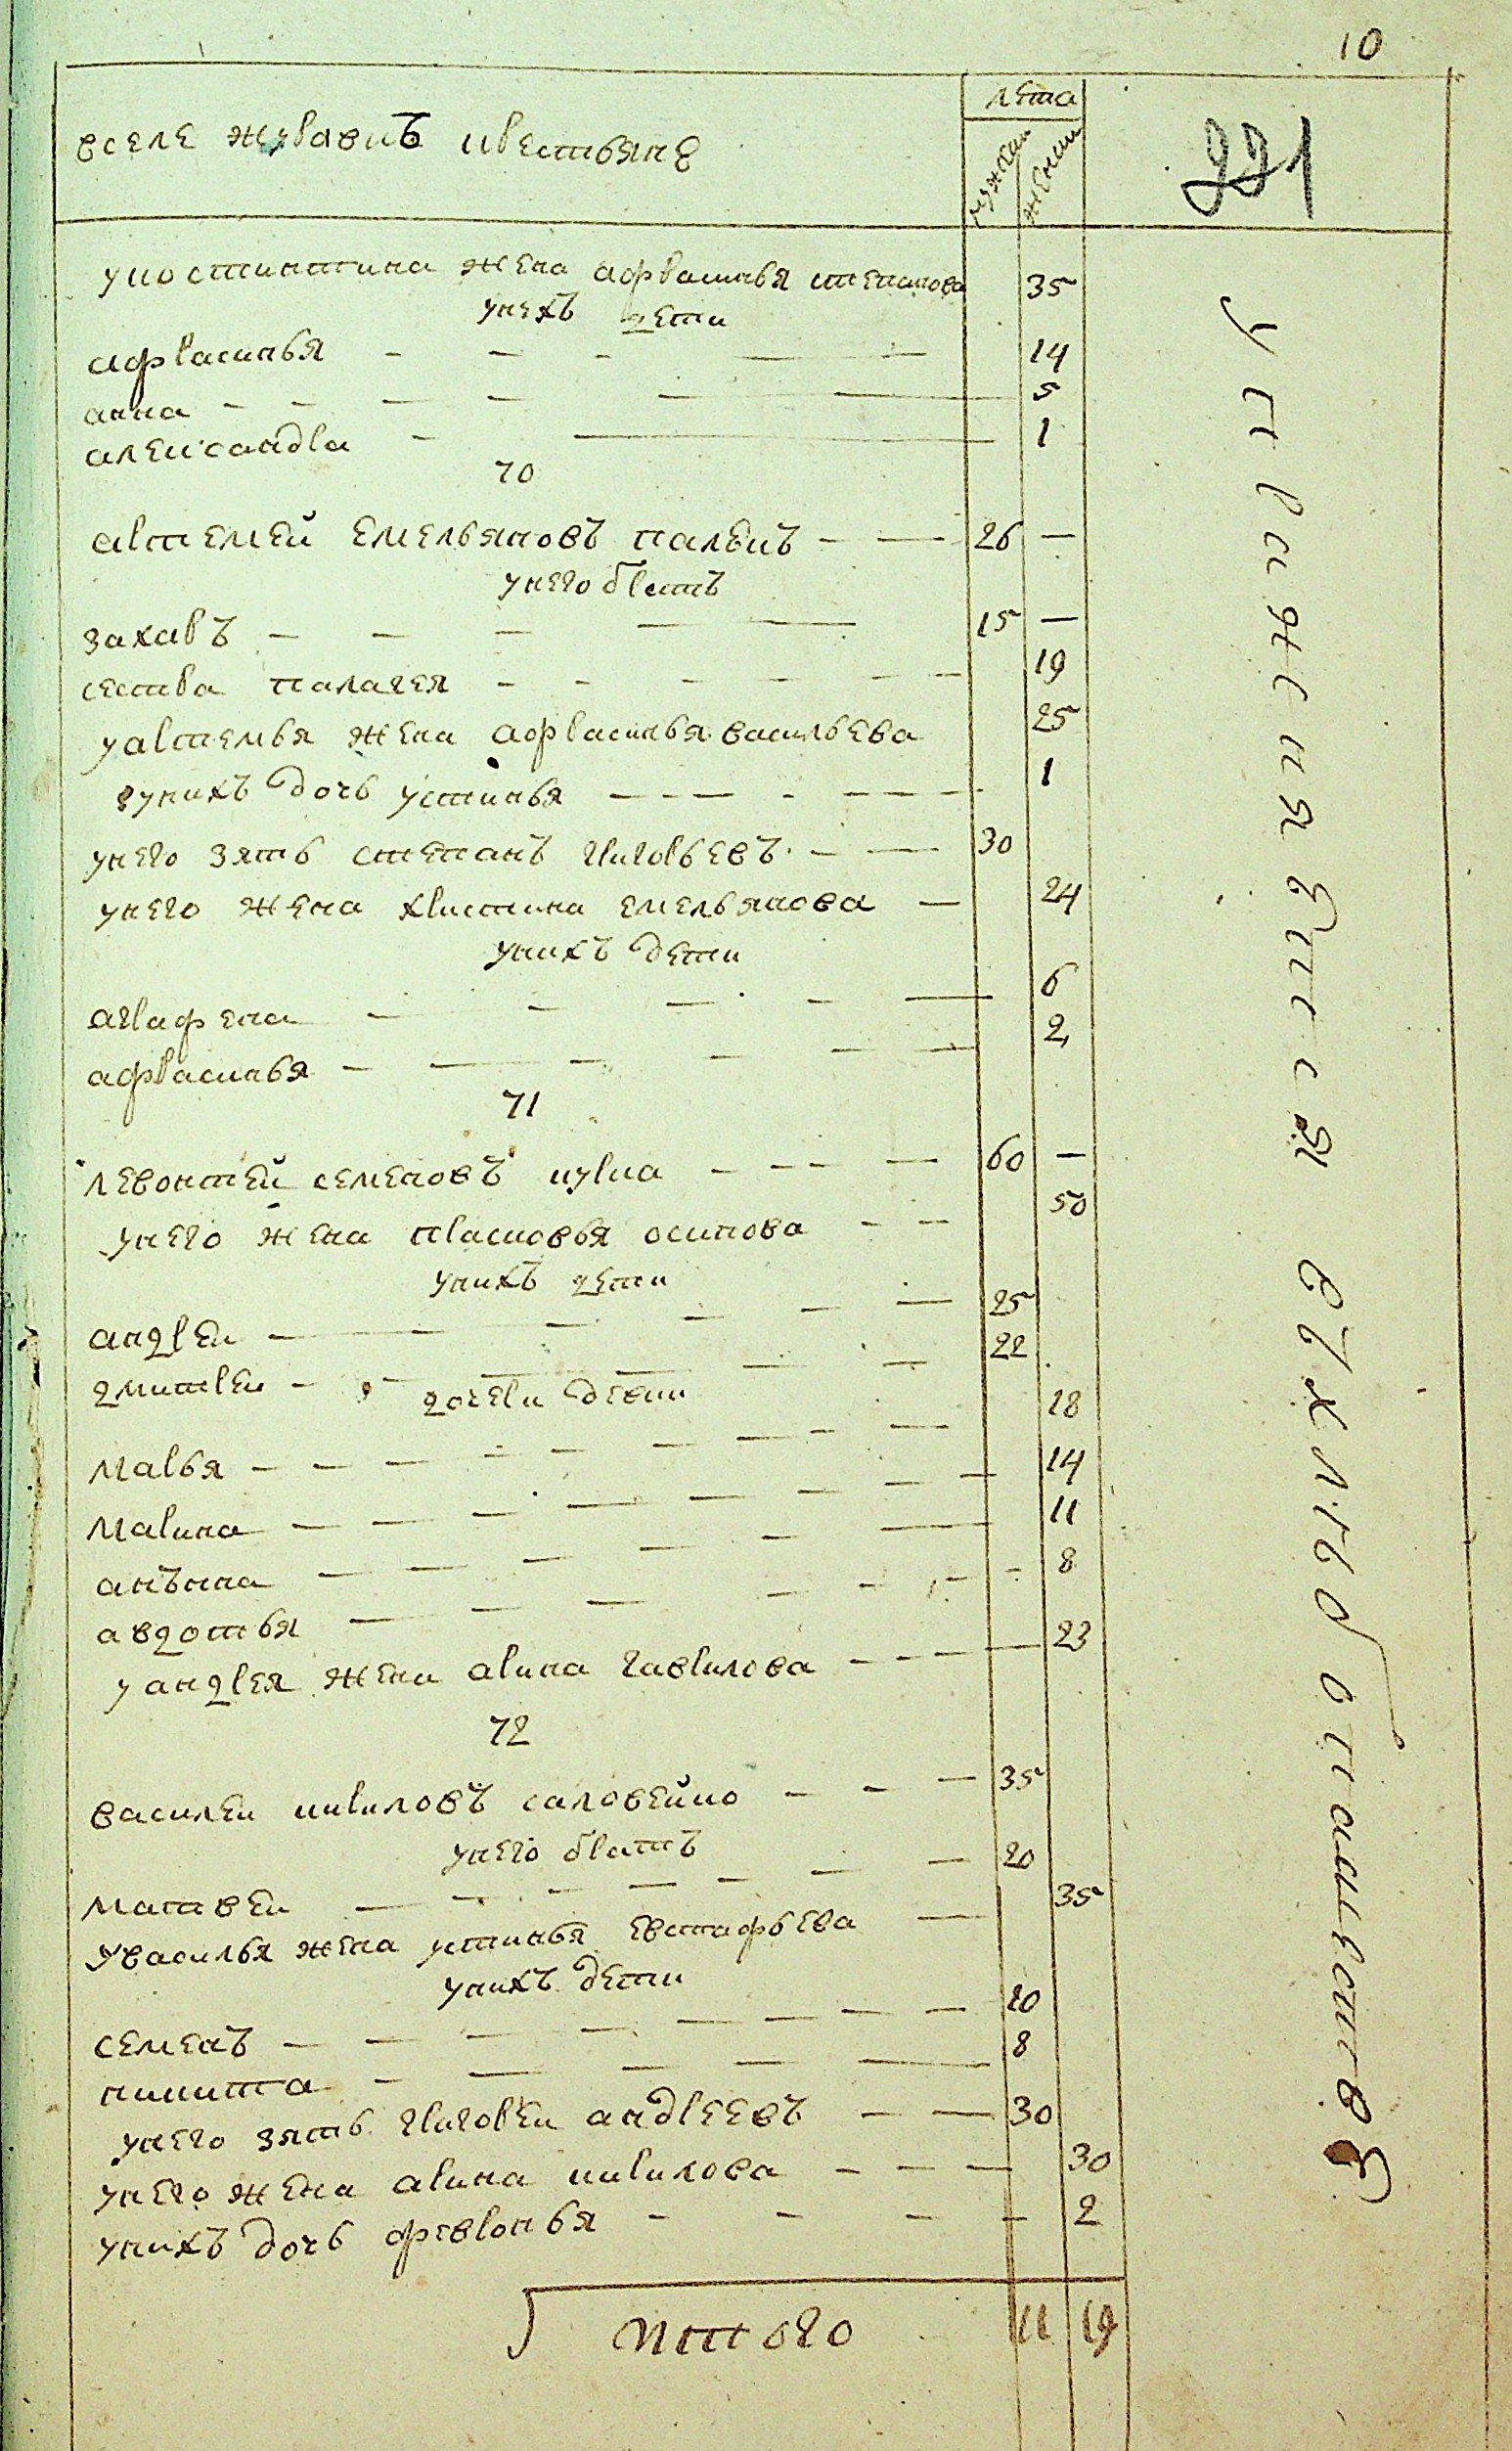 10
вселе журавкъ крестьяне
лета
мужеск
женск
221
укостинтина жена афрасинья степанова 35
унехъ дети
афрасинья 14
анна 5
александра 1
70
артемей емельяновъ палецъ 26
унего братъ
захаръ 15
сестра палагея 19
уартемья жена афрасинья васильева 25
унихъ дочь устинья 1
унего зять степанъ григорьевъ 30
унего жена христина емельянова 24
унихъ дети
аграфена 6
афрасинья 2
71
левонтей семеновъ курка 60
унего жена прасковья осипова 50
унихъ дети
андреи 25
дмитреи 22
дочери девки
марья 18
марина 14
анъна 11
авдотья 8
уандрея жена арина гаврилова 23
72
василеи кириловъ саловейко 35
унего братъ
матвеи 20
увасилья жена устинья евстафьева 35
унихъ дети
семенъ 10
никита 8
унего зять григореи андреевъ 30
унего жена арина кирилова 30
унихъ дочь февронья 2
итого 11 19